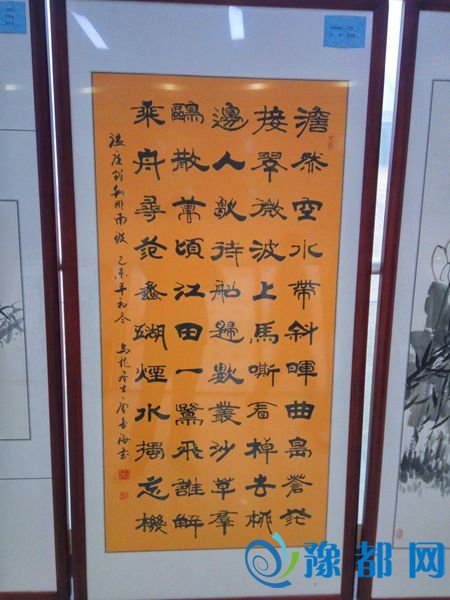 澹然空水帶斜暉曲島蒼茫
接翠微波上馬嘶看棹去柳
邊人歇待船歸數叢沙草羣
鷗散萬頃江田一鷺飛誰解
乘舟尋范蠡湖煙水獨忘機
温庭筠利州南渡 乙未年初冬
豫都网